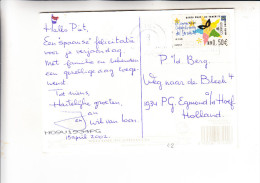 Hallo Piet,
Een "Spaanse" felicitatie
voor je verjaardag
Met familie en bekenden
een gezellige dag toege-
wenst
Tot ziens,
Hartelijke groeten,
Jan
en
van Loon
15 april 2002
0,50€
P. v/d Berg
Weg naar de Bleek 4
1934 PG Egmond a/d Hoef
Holland.